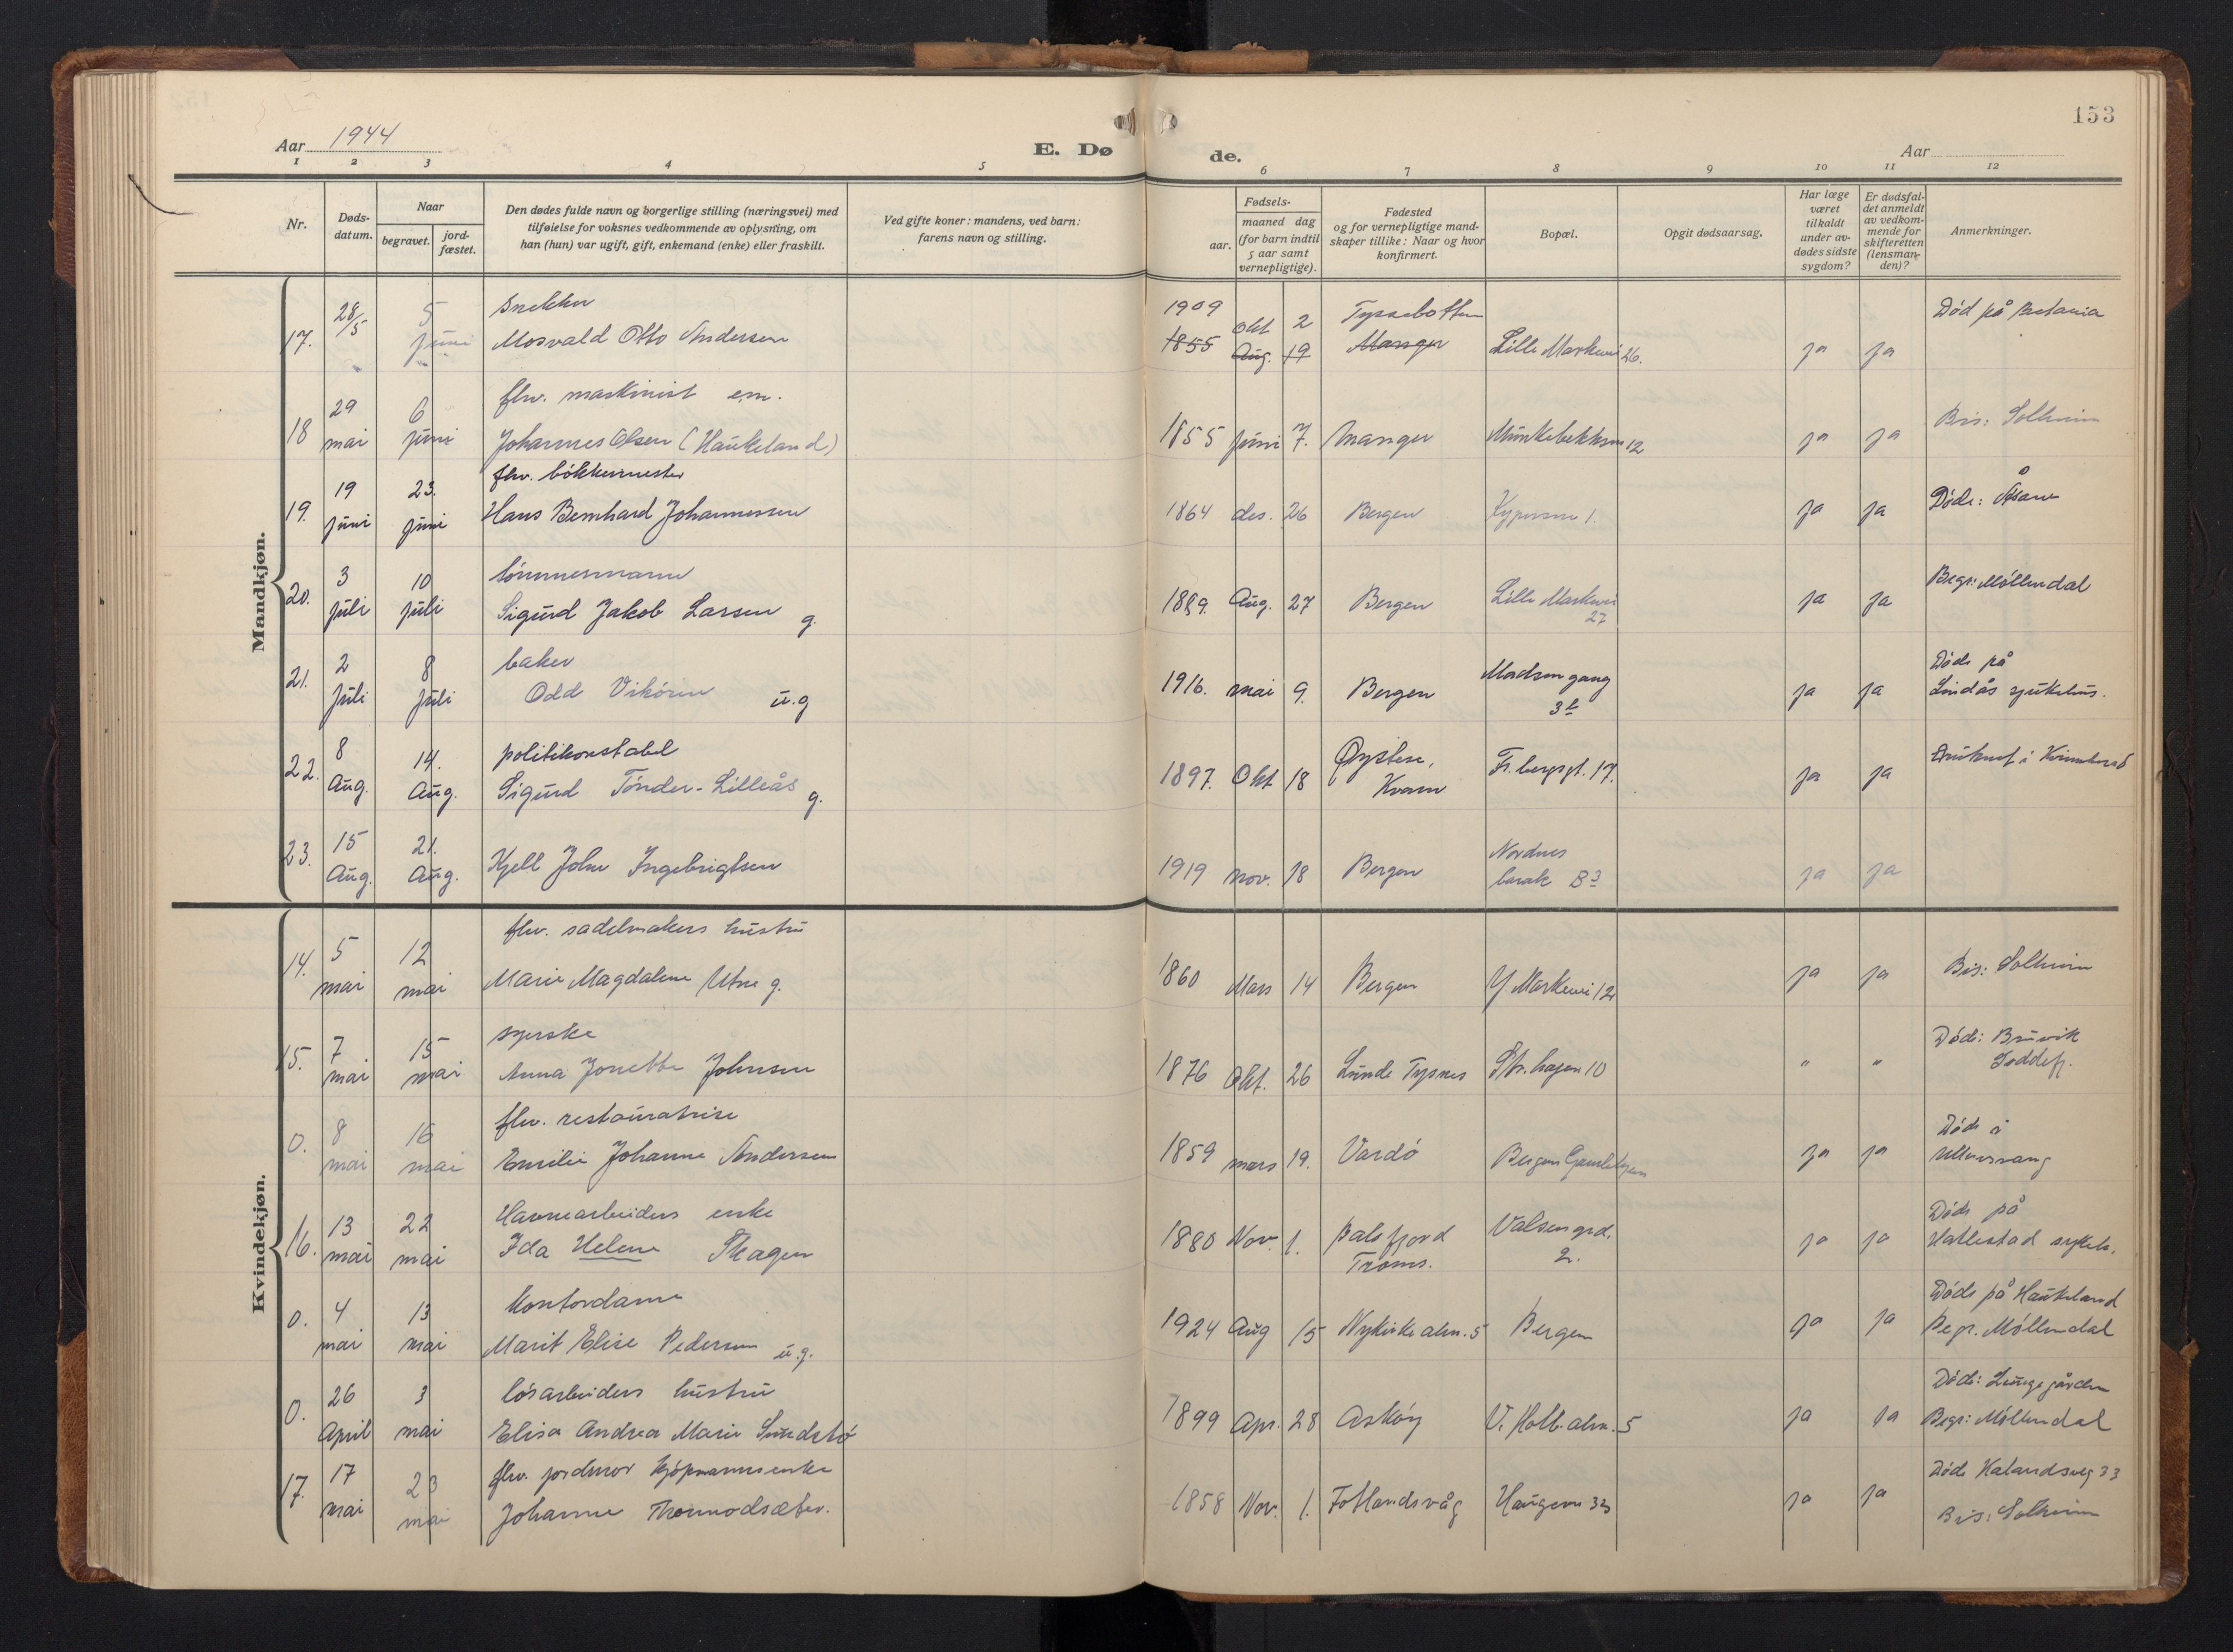 153
Aar 1944
E. Dø
de.
Aar
1 2 3 4 5 6 7 8 9 10 11 12
Nr.
Døds-
datum.
Naar
begravet.
jord-
fæstet.
Den dødes fulde navn og borgerlige stilling (næringsvei) med
tilføielse for voksnes vedkommende av oplysning, om
han (hun) var ugift, gift, enkemand (enke) eller fraskilt.
Ved gifte koner: mandens, ved barn:
farens navn og stilling.
Fødsels-
aar.
maaned dag
(for barn indtil
5 aar samt
vernepligtige).
Fødested
og for vernepligtige mand-
skaper tillike: Naar og hvor
konfirmert.
Bopæl.
Opgit dødsaarsag.
Har læge
været
tilkaldt
under av-
dødes sidste
sygdom?
Er dødsfal-
det anmeldt
av vedkom-
mende for
skifteretten
(lensman-
den)?
Anmerkninger.
Mandkjøn.
17. 28/5 5 juni
snekker
Mosvald Otto Andersen
1909 okt 2 Tyssebotten
1855 Aug. 19 Manger
Lille Markevei 26. ja ja
Død på Betania
18 29 mai 6 juni
fhv. maskinist em.
Johannes Olsen (Haukeland)
1855 juni 7. Manger Munkebekksm 12 ja ja
Bis: Solheim
19. 19 juni 23. juni
fhv. bökkermester
Hans Bernhard Johannessen
1864 des. 26 Bergen 1. ja ja
Døde: Åsane
20. 3 juli 10 juli
tömmermann
Sigurd Jakob Larsen g.
1889. Aug. 27 Bergen Lille Markevei
27 ja ja
Begr: Möllendal
21. 2 Juli 8 Juli
baker
Odd Vikören u.g
1916. mai 9. Bergen Madsen gang
3 b ja ja
Døde på
Lindås sjukehus.
22. 8 Aug. 14. Aug.
politikonstabel
Sigurd Tönder-Lilleås g.
1897. Okt 18 Øystese,
Kvam
Fr. bergsgt. 17. ja ja
i
23. 15 Aug. 21. Aug.
Kjell John Ingebrigtsen
1919 nov. 18 Bergen Nordnes
barak B 3 ja ja
Kvindekjøn.
14. 5 mai 12 mai
fhv. sadelmakers hustru
Marie Magdalene Utne g.
1860 Mars 14 Bergen Y Markevei 12 ja ja
Bis: Solheim
15. 7 mai 15 mai
syerske
Anna Jonette Johnsen
1876 Okt. 26 Lunde Tysnes Str. hagen 10 " "
Döde: Bruvik
0. 8 mai 16 mai
fhv. restauratrise
Emilie Johanne Andersen
1859 mars 19. Vardö Bergens Gamlehjem ja ja
Døde i
Ullensvang
16. 13 mai 22 mai
Havnearbeiders enke
Ida Helene Skagen
1880 Nov. 1. Balsfjord
Troms.
Valsengrd.
2. ja ja
Døde på
Hatlestad sykeh.
0. 4 mai 13 mai
Kontordame
Marit Elise Pedersen u.g.
1924 Aug 15 Nykirkealm. 5 Bergen ja ja
Døde på Haukeland
Begr. Möllendal
0. 26 April 3 mai
lösarbeiders hustru
Elisa Andrea Marie Sundstö
1899 Apr. 28 Asköy V. Holb. alm. 5 ja ja
Døde: Lungegården
Begr: Möllendal
17. 17 mai 23 mai
fhv. jordmor kjöpmannsenke
Johanne Thormodsæter.
1858 Nov. 1. Fotlandsvåg Haugevn 33 ja ja
Døde Kalandsveg 33
Bis: Solheim